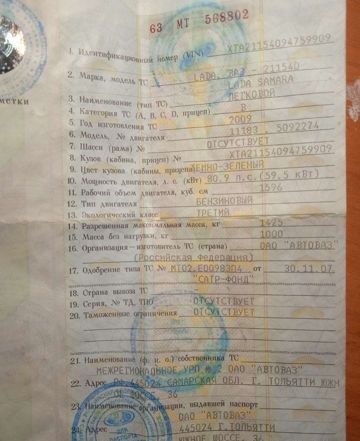 63 МТ 568802
1. Идентификационный номер (VIN) XTA21154094759909
2. Марка, модель ТС LADA, ВАЗ 211540
LADA SAMARA
3. Наименование (тип ТС) ЛЕГКОВОЙ
4. Категория ТС (А, В, С, D, прицеп) В
5. Год изготовления ТС 2009
6. Модель, № двигателя 11183 , 5092274
7. Шасси (рама) № ОТСУТСТВУЕТ
8. Кузов (кабина, прицеп) № XTA21154094759909
9. Цвет кузова (кабины, прицепа) ЕННО-ЗЕЛЕНЫЙ
10. Мощность двигателя, л. с. (кВт) 80.9 л.с.(59.5 кВт)
11. Рабочий объем двигателя, куб. см 1596
12. Тип двигателя БЕНЗИНОВЫЙ
13. Экологический класс ТРЕТИЙ
14. Разрешенная максимальная масса, кг 1425
15. Масса без нагрузки, кг 1000
16. Организация-изготовитель ТС (страна) ОАО "АВТОВАЗ"
(Российская Федерация)
17. Одобрение типа ТС № от 30.11.07
"САТР-ФОНД"
18. Страна вывоза ТС
19. Серия, № ТД, ТПО ОТСУТСТВУЕТ
20. Таможенные ограничения ОТСУТСТВУЕТ
метки
21. Наименование (ф. и. о.) собственника ТС
МЕЖРЕГИОНАЛЬНОЕ УРП № 2 ОАО "АВТОВАЗ"
22. Адрес РФ, 445024 САМАРСКАЯ ОБЛ. Г. ТОЛЬЯТТИ ЮЖН
36
23. Наименование организации, выдавшей паспорт
ОАО "АВТОВАЗ"
24. Адрес 445024 Г.ТОЛЬЯТТИ